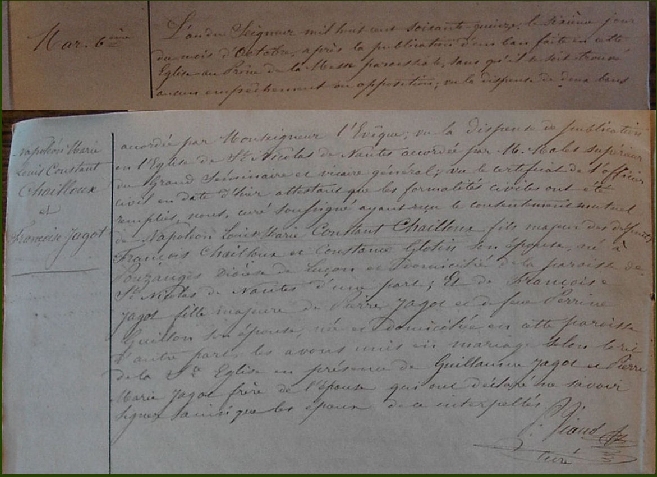 Mar. 6ème
L'an du Seigneur mil huit cent soixante-quinze, le sixième jour
du mois d'Octobre, après la publication d'un ban faite en cette
Eglise au Prône de la Messe paroissiale, sans qu'il se soit trouvé
aucun empêchement ou opposition; vu la dispense de deux bans
Napoléon Marie
Louis Constant
Chailloux
et
Françoise Jagot
accordée par Monseigneur l'Evêque; vu la dispense de publication
en l'Eglise de St Nicolas de Nantes accordée par M. supérieur
du Grand Séminaire et vicaire général; vu le certificat de l'officier
civil en date d'hier attestant que les formalités civiles ont été
remplies, nous, curé soussigné ayant reçu le consentement mutuel
de Napoléon Louis Marie Constant Chailloux fils majeur des
François Chailloux et Constance son épouse, né à
Pouzauges diocèse de Luçon et domicilié de la paroisse de
St Nicolas de Nantes d'une part; Et de Françoise
Jagot fille majeure de Pierre Jagot et de feue Perrine
son épouse, née et domiciliée en cette paroisse
d'autre part, les avons unis en mariage selon le rit
de la Ste Eglise en présence de Guillaume Jagot et Pierre
Marie Jagot frère de l'Epouse qui ont déclaré ne savoir
signer ainsi que les époux de ce interpellés
curé